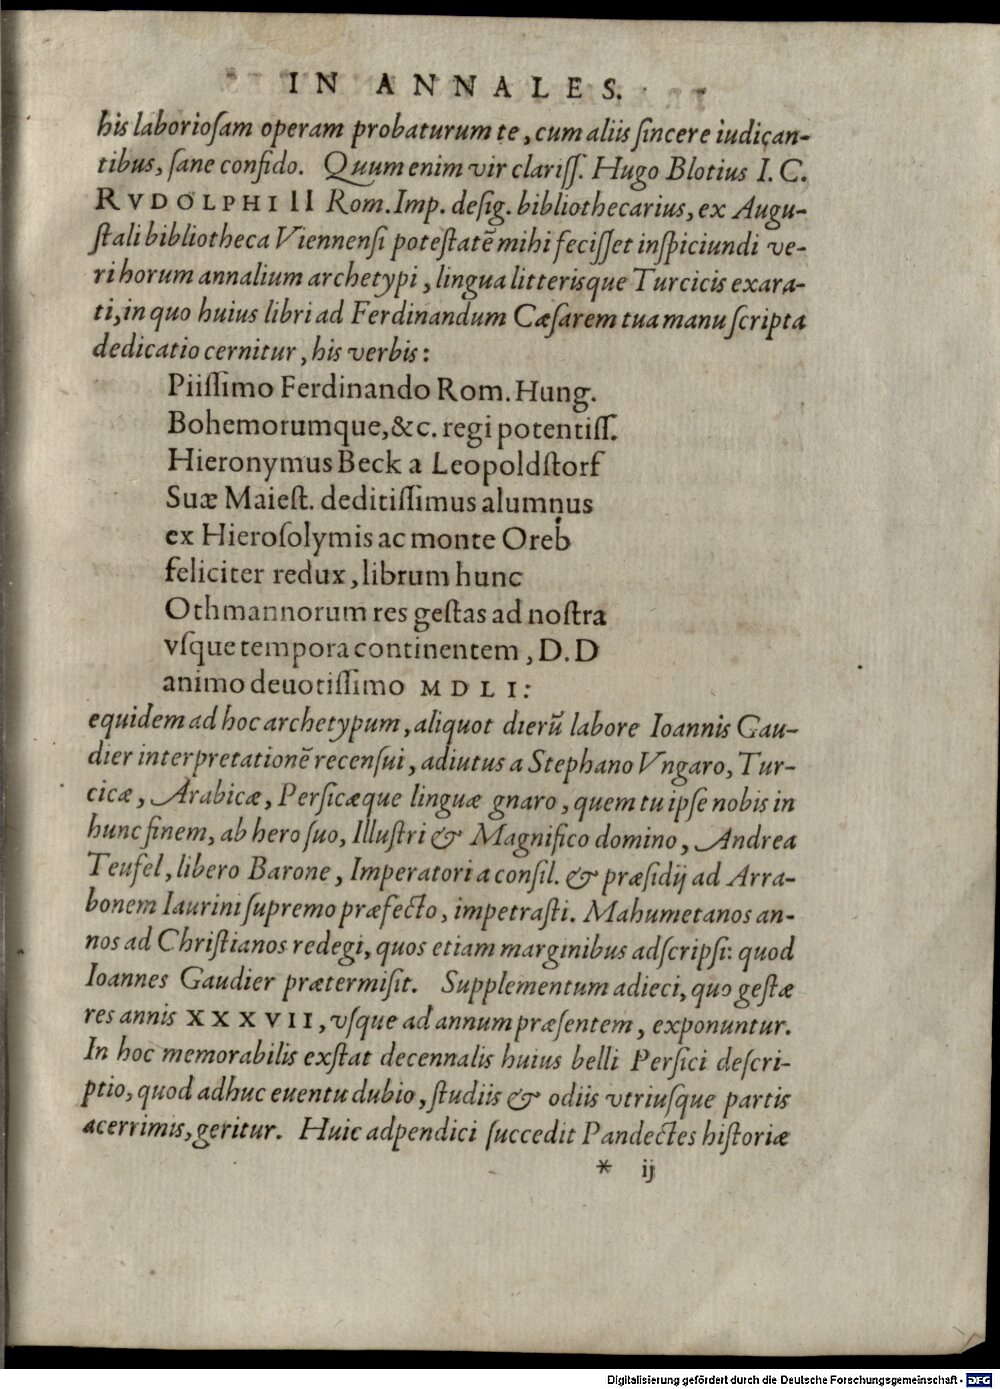 IN ANNALES.
his laborioſam operam probaturum te, cum aliis ſincere iudican-
tibus, ſane confido. Quum enim vir clariſſ. Hugo Blotius I. C.
RVDOLPHI II Rom. Imp. deſig. bibliothecarius, ex Augu-
ſtali bibliotheca Viennenſi poteſtatē mihi feciſſet inſpiciundi ve-
ri horum annalium archetypi, lingua litterisque Turcicis exara-
ti, in quo huius libri ad Ferdinandum Cæſarem tua manu ſcripta
dedicatio cernitur, his verbis:
Piiſſimo Ferdinando Rom. Hung.
Bohemorumque, &c. regi potentiſſ.
Hieronymus Beck a Leopoldſtorf
Suæ Maieſt. deditiſſimus alumnus
ex Hieroſolymis ac monte Oreb
feliciter redux, librum hunc
Othmannorum res geſtas ad noſtra
vſque tempora continentem, D. D
animo deuotiſſimo MDLI:
equidem ad hoc archetypum, aliquot dierū labore Ioannis Gau-
dier interpretationē recenſui, adiutus a Stephano Vngaro, Tur-
cicæ, Arabicæ, Perſicæque linguæ gnaro, quem tu ipſe nobis in
hunc finem, ab hero ſuo, Illuſtri & Magnifico domino, Andrea
Teufel, libero Barone, Imperatori a conſil. & præſidij ad Arra-
bonem Iaurini ſupremo præfecto, impetraſti. Mahumetanos an-
nos ad Chriſtianos redegi, quos etiam marginibus adſcripſi: quod
Ioannes Gaudier prætermiſit. Supplementum adieci, quo geſtæ
res annis XXXVII, vſque ad annum præſentem, exponuntur.
In hoc memorabilis exſtat decennalis huius belli Perſici deſcri-
ptio, quod adhuc euentu dubio, ſtudiis & odiis vtriuſque partis
acerrimis, geritur. Huic adpendici ſuccedit Pandectes hiſtoriæ
* ij
Digitalisierung gefördert durch die Deutsche Forschungsgemeinschaft - DFG